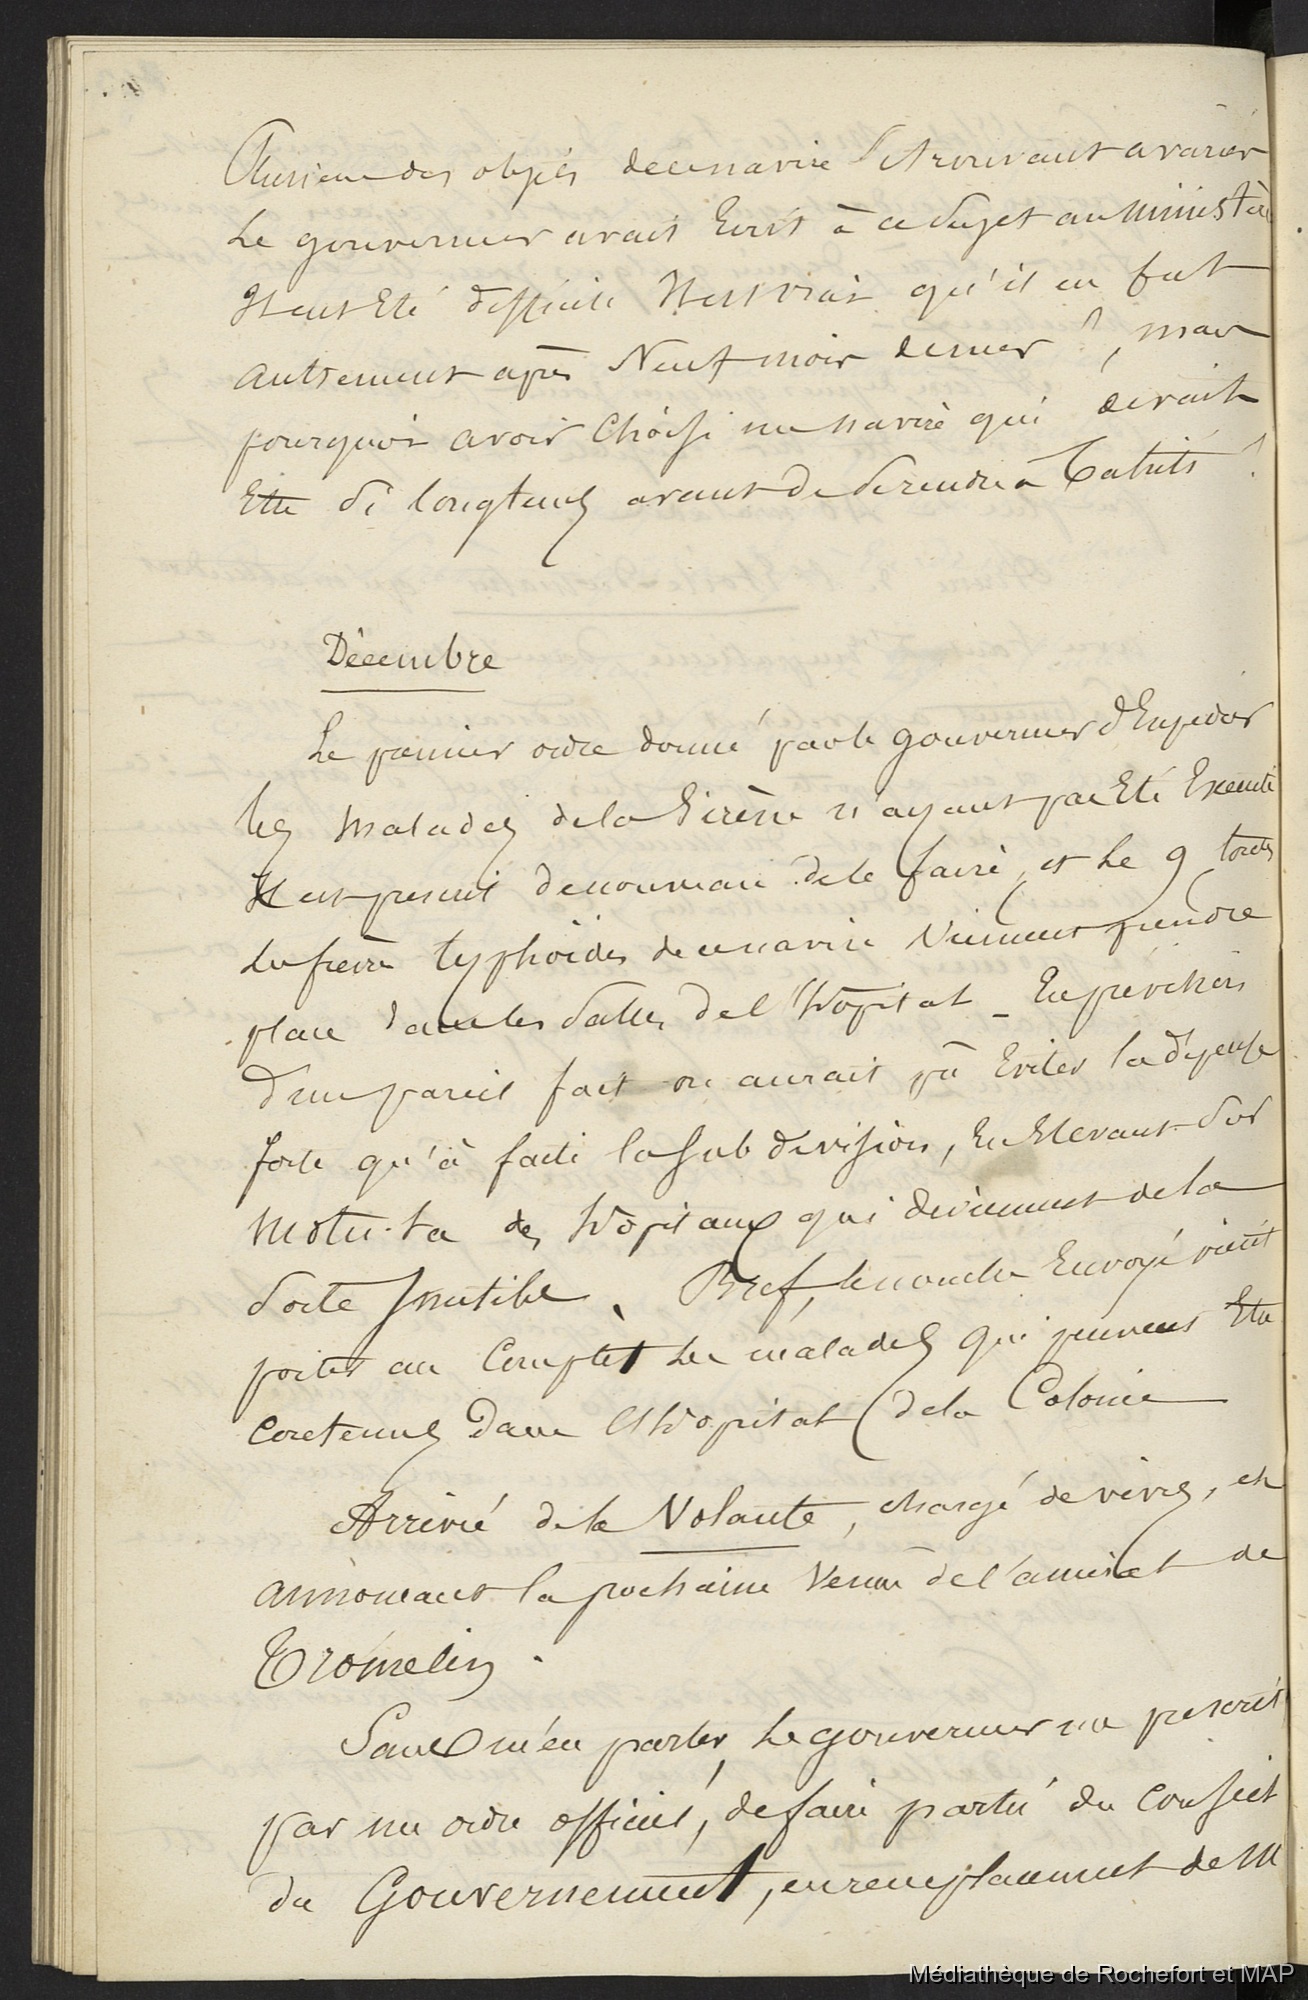 Plusieurs des objets de ce navire se trouvant avariés
Le gouverneur avait Ecrit à ce sujet au ministère
Il eut Eté difficile Il est vrai qu'il en fut
autrement après Neuf mois de mer ?, mais
pourquoi avoir choisi un navire qui devait
Etre si longtems avant de se rendre à Tahiti ?
Décembre
Le premier ordre donné par le gouverneur d'Enpecher
les malades de la Sirène n'ayant pas Eté Executé
Il est prescrit de nouveau de le faire, et Le 9 toutes
les fièvres typhoïdes de ce navire viennent prendre
place dans les salles de l'hôpital _ En prévision
d'un pareil fait on aurait pû Eviter la dépense
forte qu'à faite la subdivision, En Elevant sur
Motu-ta des hôpitaux qui deviennent de la
sorte Inutile. Bref, le nombre Envoyé vient
porter au complet les malades qui peuvent Etre
contenus dans l'hopital de la Colonie
Arrivé de la Volante, chargé de vivres, et
annoncant la prochaine venue de l'amiral de
Tromelin.
Sans m'en parler, Le gouverneur me prescrit
par un ordre officiel, de faire partie du conseil
du Gouvernement, en remplacement de M
Médiathèque de Rochefort et MAP